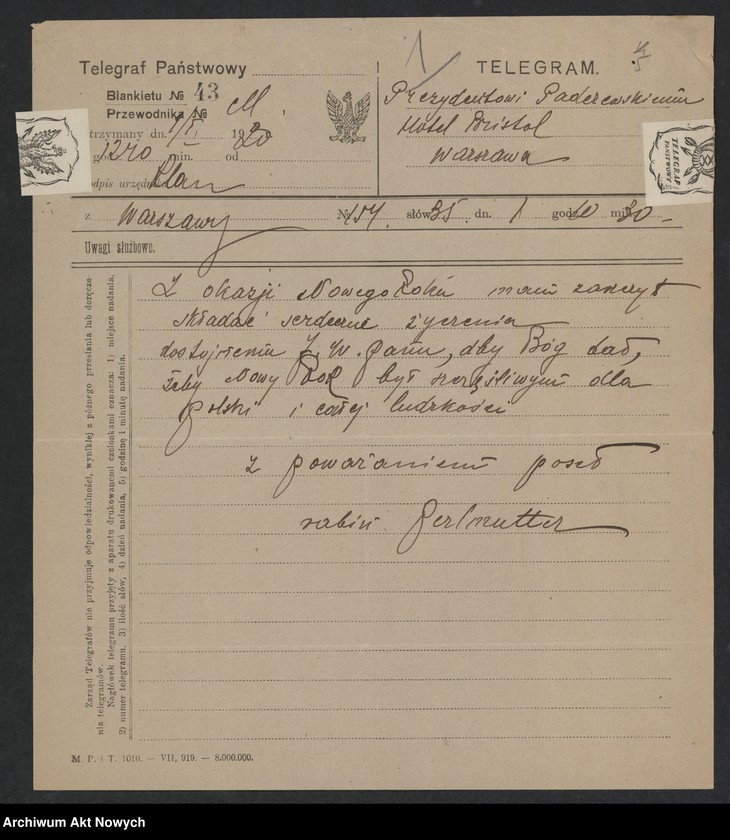 Telegraf Państwowy
Blankietu № 43
Przewodnika №
trzymany dn. 1/I 1920
g. 1210 min. od
odpis urzędnika
TELEGRAM.
Prezydentowi Paderewskiemu
Hotel Bristol
Warszawa
TELEGRAF PAŃSTWOWY
z Warszawy № 154. słów 35. dn. 1 godz. 10 min. 30
Uwagi służbowe.
Z okazji Nowego Roku mam zaszczyt
składać serdeczne życzenia
dostojnemu J. W. Panu, aby Bóg dał,
żeby Nowy Rok był szczęśliwym dla
Polski i całej ludzkości
z poważaniem poseł
rabin Perlmutter
Zarząd Telegrafów nie przyjmuje odpowiedzialności, wynikłej z późnego przesłania lub doręcze-
nia telegramów.
Nagłówek telegramu przyjęty z aparatu drukowanemi członkami oznacza: 1) miejsce nadania,
2) numer telegramu, 3) ilość słów, 4) dzień nadania, 5) godzinę i minutę nadania.
M. P. i T. 1010. — VII, 919. — 8.000.000.
Archiwum Akt Nowych